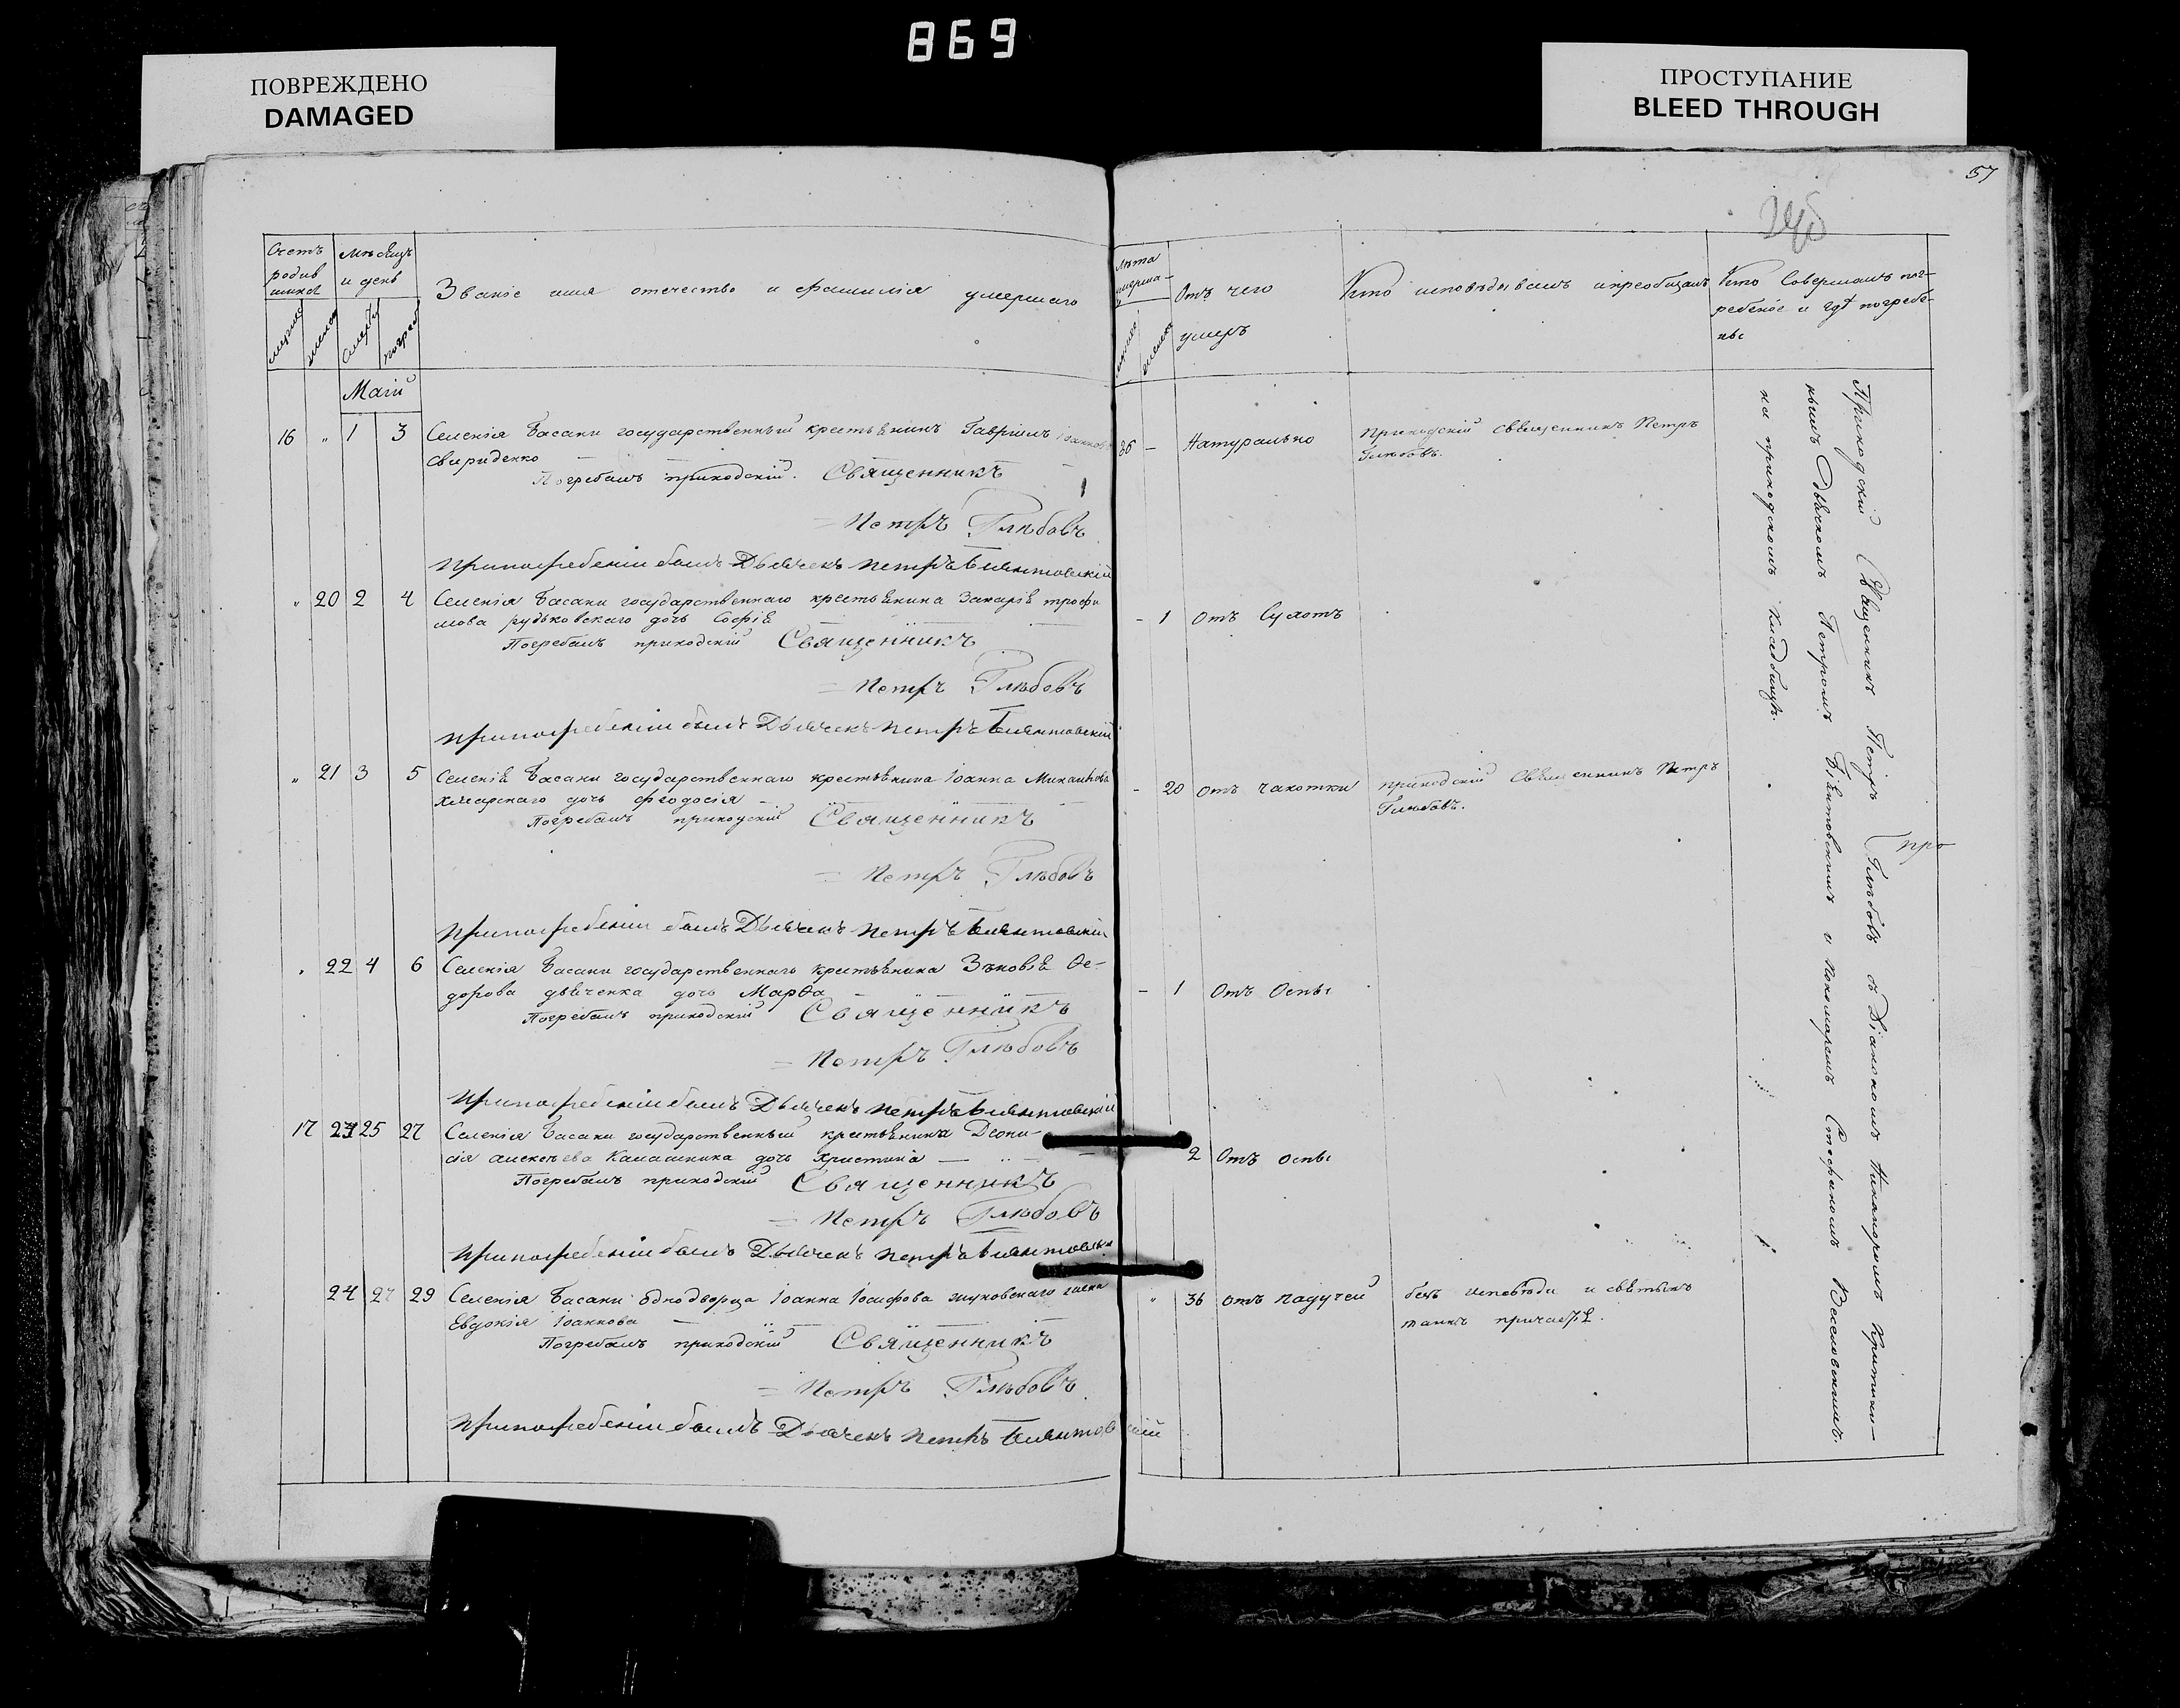 869
ПОВРЕЖДЕНО
DAMAGED
ПРОСТУПАНИЕ
BLEED THROUGH
57
Счетъ родив
мѣсяцъ и день
Званіе имя отечество и фамилія умершаго
Маій
16 " 1 3 Селенія Басани государственный крестьянинъ Гавріилъ Іоанновъ
Свириденко
Погребалъ приходскій Священникъ
Петръ Глѣбовъ
При погребеніи былъ Дьячекъ Петръ
" 20 2 4 Селенія Басани государственнаго крестьянина Захарія трофи
мова рудьковскаго дочь Софія
Погребалъ приходскій Священникъ
Петръ Глѣбовъ
При погребеніи былъ Дьячекъ Петръ
" 21 3 5 Селенія Басани государственнаго крестьянина Іоанна Михайлова
дочь феодосія
Погребалъ приходскій Священникъ
Петръ Глѣбовъ
При погребеніи былъ Дьячекъ Петръ
" 22 4 6 Селенія Басани государственнаго крестьянина Зѣновія Ѳе-
дорова дьяченка дочь Марѳа
Погребалъ приходскій Священникъ
Петръ Глѣбовъ
При погребеніи былъ Дьячекъ Петръ
17 23 25 27 Селенія Басани государственный крестьянина Діони-
сія алексѣева Калашника дочь Христина
Погребалъ приходскій Священникъ
Петръ Глѣбовъ
При погребеніи былъ Дьячекъ Петръ
24 27 29 Селенія Басани однодворца Іоанна Іосифова жуковскаго жена
Евдокія Іоаннова
Погребалъ приходскій Священникъ
Петръ Глѣбовъ
При погребеніи былъ Дьячекъ Петръ
лѣта
Отъ чего умеръ
Кто исповѣдывалъ и пріобщалъ
Кто Совершалъ пог-
ребеніе и гдѣ погребе-
ны
36 - Натурально приходскій священникъ Петръ
Глѣбовъ.
- 1 Отъ Сухотъ
- 20 Отъ чахотки приходскій Священникъ Петръ
Глѣбовъ.
- 1 Отъ Оспы
2 Отъ оспы
" 36 Отъ падучей безъ исповѣди и святыхъ
таинъ
Приходскій Священникъ Петръ Глѣбовъ съ Діакономъ Никаноромъ Критиц-
кимъ Дьячкомъ Петромъ и пономаремъ Стефаномъ Веселовскимъ.
на приходскомъ кладбищѣ.
про